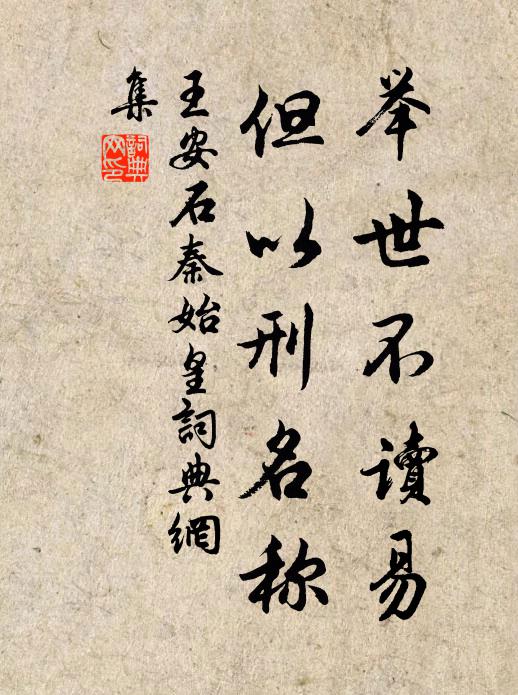 举世不讀易
但以刑名称
王安石秦始皇詞典網
集
詞典
网印